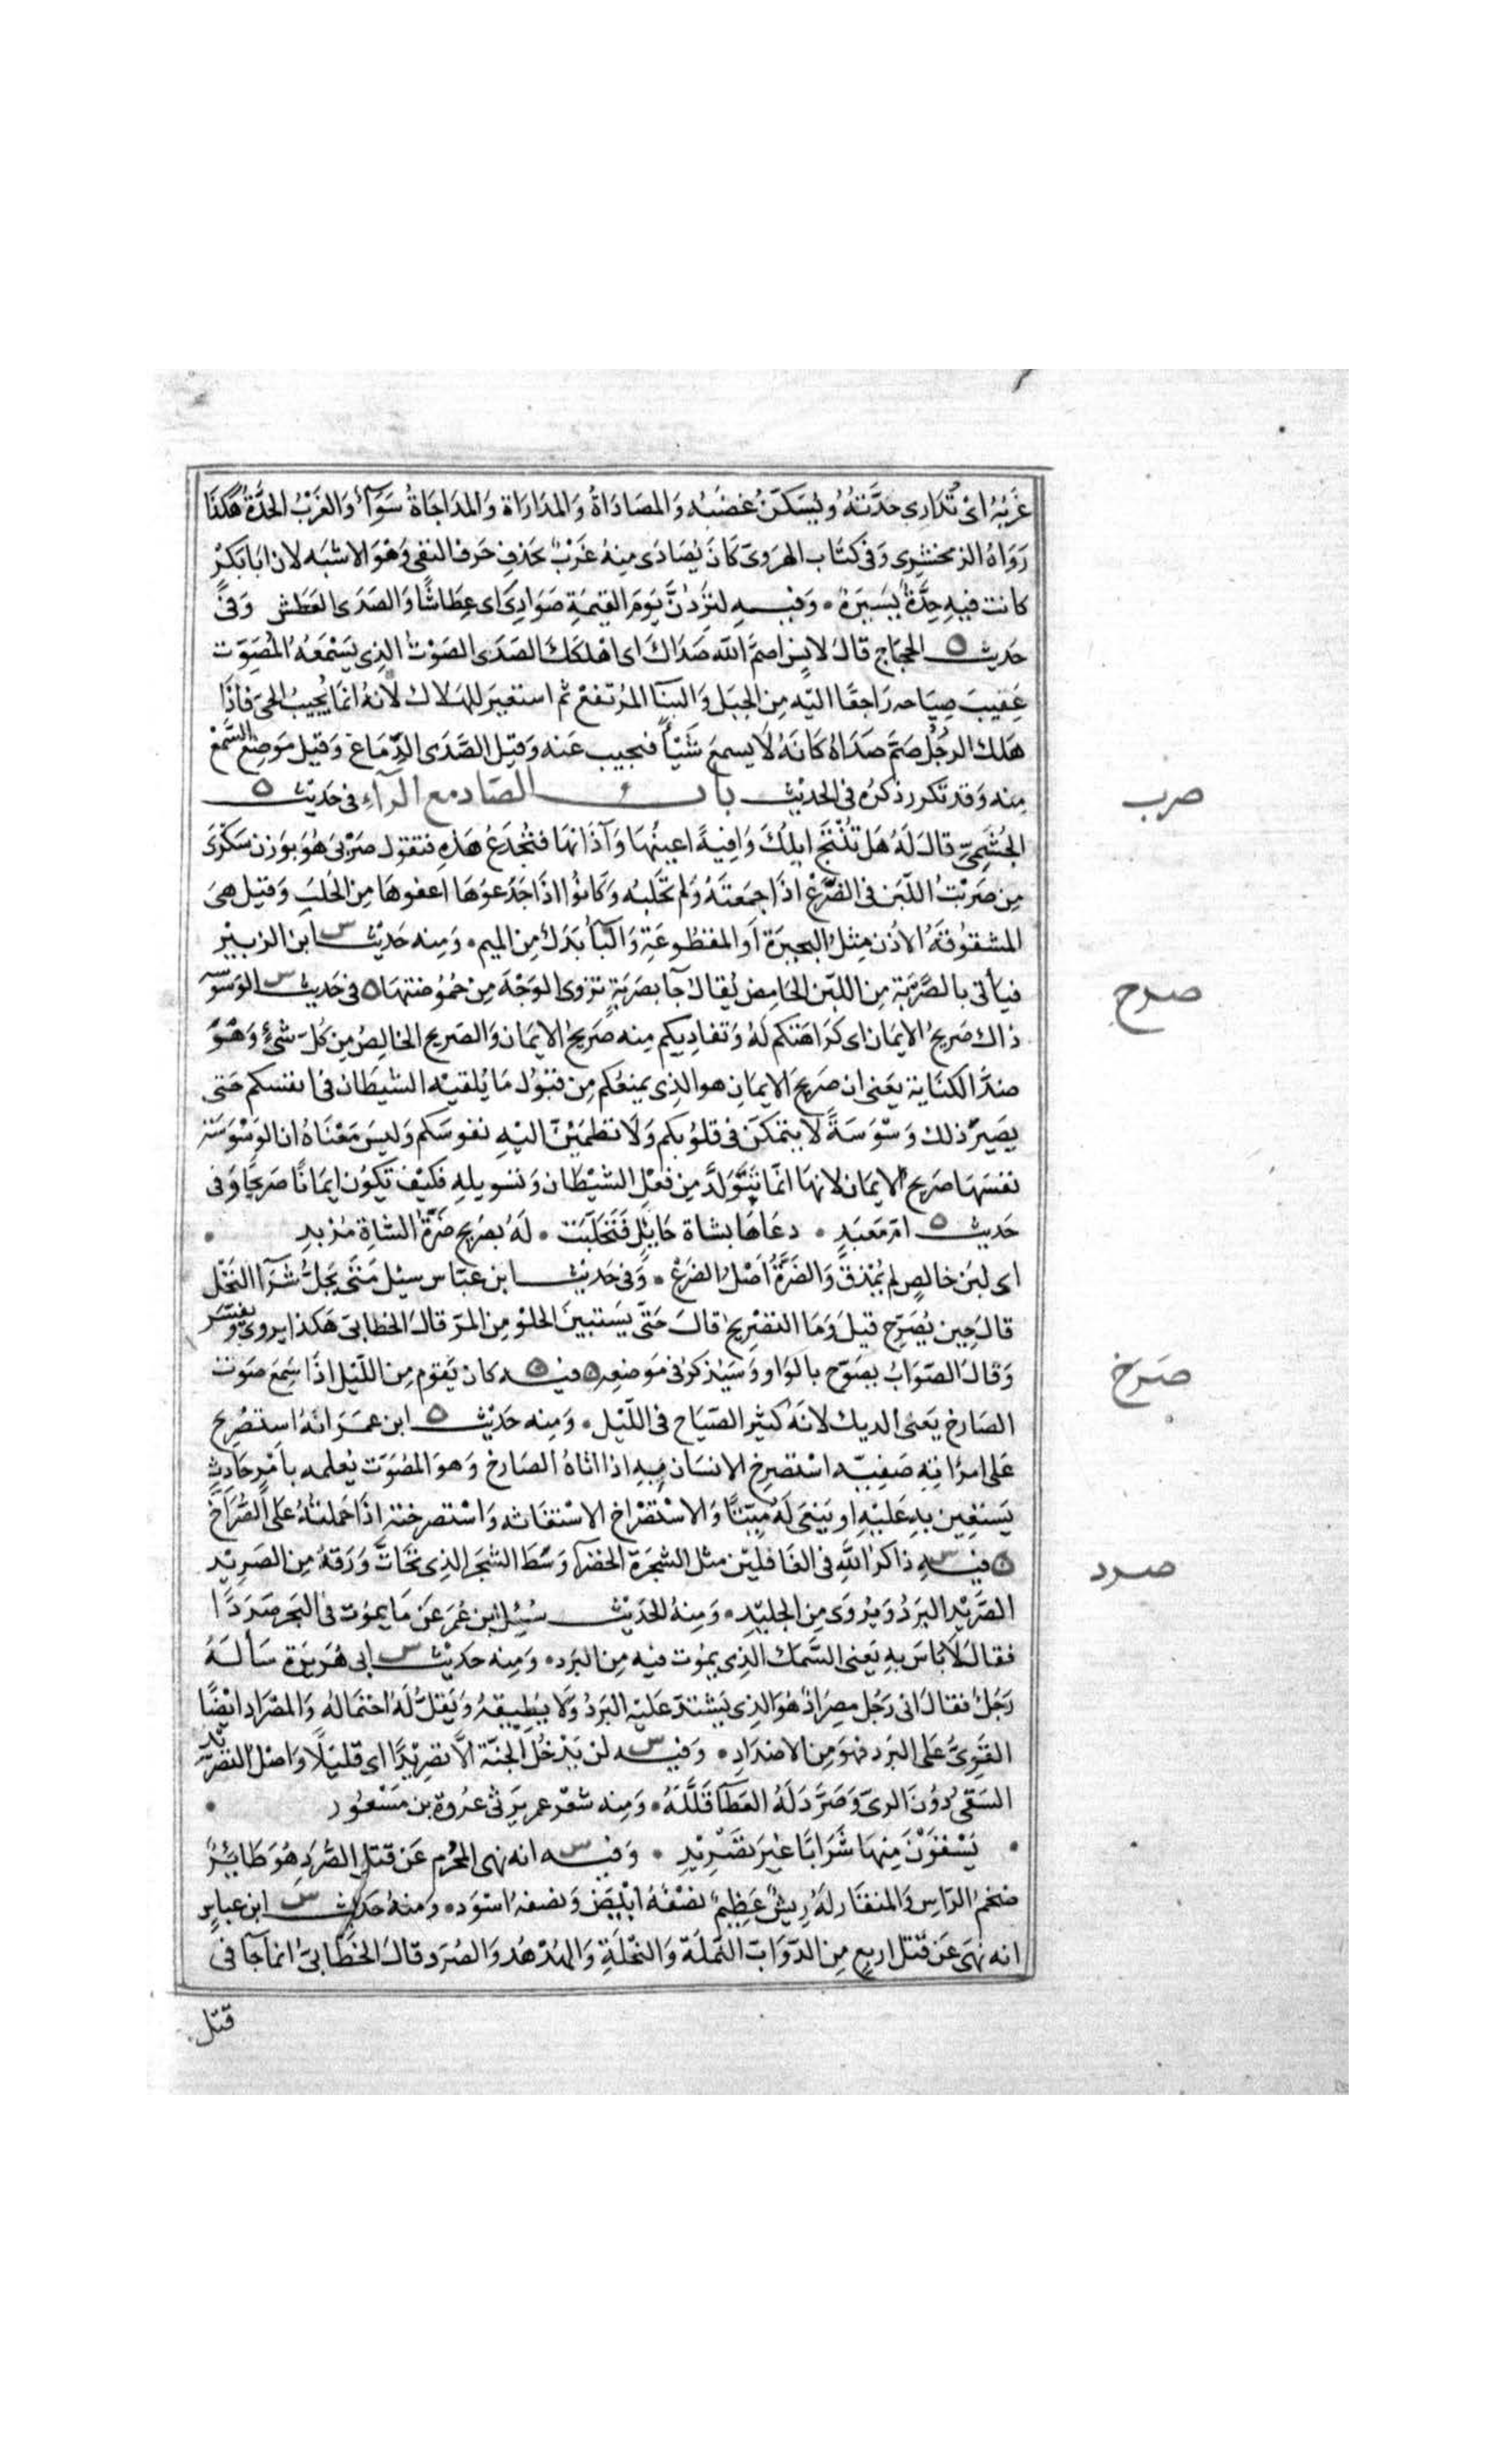 غَرْبُهُ اىْ تُدَارى حدَّتهُ وَيُسَكَّنُ غَضبُه وَالمصَادَاةُ وَالمدَارَاة وَالمدَاجَاةُ سَوَآءٌ وَالغَرْبُ الحدَّةُ هكذَا
رَوَاهُ الزمخشرِى وَفى كتَاب الهرَوىّ كَانَ يُصَادَى مِنهُ غَرْبٌ بحَذفِ حَرف النفى وَهْوَ الاشبَه لان ابَا بَكرْ
كانت فيهِ حِدَّةٌ يَسِيَرةٌ ٠ وَفيــهِ لتَرِدُنَّ يَومَ القيمَةِ صَوَادِىَ اى عِطَاشًا وَالصَدَى العَطش وَفىْ
حَديث الحجاج قال لانِس اصمَّ الله صَدَاكَ اى اهْلكَكَ الصَدَى الصَوْتُ الذِى يَسْمَعُهُ المُصَوِّت
عَقِيبَ صِيَاحه رَاجعًا اليّه مِن الجبَل وَالبنَآ المرُتفع ثم استعيَر للهَلاك لاَنهُ انمَا يُجِيبُ الحىَّ فاذَا
هَلك الرجُل صَمَّ صَدَاهُ كَانَهُ لاَ يسمَع شَيْـًٔا فيجيب عَنه وَقيل الصَّدَى الدِّمَاغ وَقيل مَوضِعُ السَّمْع
مِنه وَقد تكرر ذكرُه فى الحديث بابـــ الصَاد مع الرآءِ فى حَدِيث
صرب
الجُشَمِىِّ قالَ لَهُ هَل تُنْتَجُ ابِلُكَ وَافِيةً اعينُها وَآذَانها فتُجْدَعُ هَذِهِ فتقول صَرْبَى هُوَ بوَزن سَكْرَى
مِن صَرَبْتُ اللّبَن فى الضَّرْعِ اذَا جمَعتَهُ وَلم تحَلبُه وَكَانُوا اذَا جَدَعوُهَا اعفوهَا مِن الحَلبَ وَقيل هىَ
المشقوُقةُ الاذن مِثل البحيَرة اَو المقطوُعَةِ وَالبَآءُ بَدَلٌ مِن الميم ٠ وَمِنه حَديث ابن الزبيْر
فيَأتى بالصَّرْبَة مِن اللبَن الحَامِض يُقال جآ بصَربَةٍ تزوى الوَجْهَ مِن حمُوُضتهَا فى حَديث الوَسْوَسَه
صرح
ذاك صَريحُ الايمَان اى كَرَاهَتكم لَهُ وَتفاديِكم مِنه صَريحُ الايمَان وَالصَريح الخالِصُ مِن كلِّ شئٍ وَهُوَ
ضدُّ الكنَاية يعَنى ان صَريحَ الايمَانِ هو الذِى يمنعُكم مِن قبُول مَا يُلقيْه الشيطَان فى انفسكم حَتى
يصَيرَ ذلك وَسْوَسَةً لا يتمكَّن فى قلوُبكم وَلاَ تطمَئِنّ اليْهِ نفوسَكم وَليسَ مَعْنَاهُ ان الوَسْوَسَة
نفسَها صَريح الايمَان لانهَا انمَا تتَوَلَّدَ مِن فعْلِ الشيْطان وَتسويلِه فكيْف تكوُن ايمَانًا صَريحًا وَفى
حَديث امّ مَعبَدٍ ٠ دعَاهَا بشاة حَايلٍ فَتَحَلّبَت ٠ لَهُ بصَريحٍ ضَرَّةُ الشاةِ مُزْبدِ ٠
اى لبَن خالِصٍ لم يُمْذق وَالضَرَّةُ اصْلُ الضرعْ ٠ وَفى حَديث ابن عبّاس سيُل مَتَى يحَلُّ شرَآ النَخْل
قال حِين يُصَرِّح قيلَ وَمَا التصْرِيح قالَ حَتَّى يَستبينَ الحلوْ مِن المرّ قالَ الخطابىّ هَكذا يروى وَيفسَّر
وَقالَ الصَوَابُ يصَوّح بالوَاو وَسَيُذكر فى مَوضعِه فيــه كان يَقوم مِن اللَّيْل اذَا سَمِعَ صَوتَ
صرخ
الصَارخ يعَنى الديك لانهَ كثيُر الصّيَاح فى اللَّيْل ٠ وَمِنه حَديْث ابن عمَرَ انهُ استصُرِخ
عَلى امرَاتِه صَفِيّه اسْتصرِخَ الانسَان بهِ اذا اتاهُ الصَارخ وَهوَ المصُوّت يُعلمه باَمْرٍ حَادثٍ
يَستعِين بهِ عَليْهِ او يَنعَى لَهُ مَيّتًا وَالاسْتصْرَاخ الاسْتغَاثه وَاسْتصرختهُ اذَا حَملتهُ على الصُّرَاخ
فيــهِ ذاكرُ اللهِ فى الغَافليْن مثل الشجَرَة الخضرَآ وَسْط الشجَر الذِى تحَاتَّ وَرَقهُ مِن الصَرِيْد
صرد
الصَّرِيْد البَردُ وَيرُوَى مِن الجليْدِ ٠ وَمِنهُ الحَديْث سُئِل ابن عُمَر عَن مَا يموُت فى البَحر صَرَدًا
فقالَ لاَ باسَ بهِ يعَنى السَّمَك الذِى يموُت فيه مِن البَرد ٠ وَمِنه حَديْث ابى هُريَرَة سَألَهُ
رَجُلٌ فقالَ انى رَجُل مِصرَادٌ هُوَ الذِى يَشتدّ عَليْه البَردُ وَلا يُطِيقهُ وَيَقلُّ لَهُ احْتمَالهُ وَالمصْرَاد ايْضًا
القَوِىُّ عَلى البَرد فهوَ مِن الاضدَادِ ٠ وَفيــه لن يَدْخُل الجنّة الَّا تصَرِيْدًا اى قليْلًا وَاصْلُ التصْرِيْد
السَقىُ دُوُنَ الرىِّ وَصَرَّدَ لَهُ العَطَآ قَلَّلَهُ ٠ وَمِنه شعْر عمر يَرثى عرُوة بن مَسْعوُد ٠
٠ يَسْقَوْنَ مِنهَا شَرَابًا غيَرَ تصَرِيْدِ ٠ وَفيــه انه نهى المحْرِم عَن قتل الصُّرَدِ هُوَ طَائِرٌ
ضَخمُ الرَاسِ وَالمنقَار لَهُ رِيشٌ عَظِيمٌ نصْفهُ ابْيَض وَنصفه اسْوَد ٠ وَمنهُ حَديث ابن عباسٍ
انه نهَى عَن قَتل اربعٍ مِن الدّوَابّ النمَلَة وَالنحْلَةِ وَالهدْهُد وَالصُرَد قالَ الخطَّابىّ انمَا جَآ فى
قتل